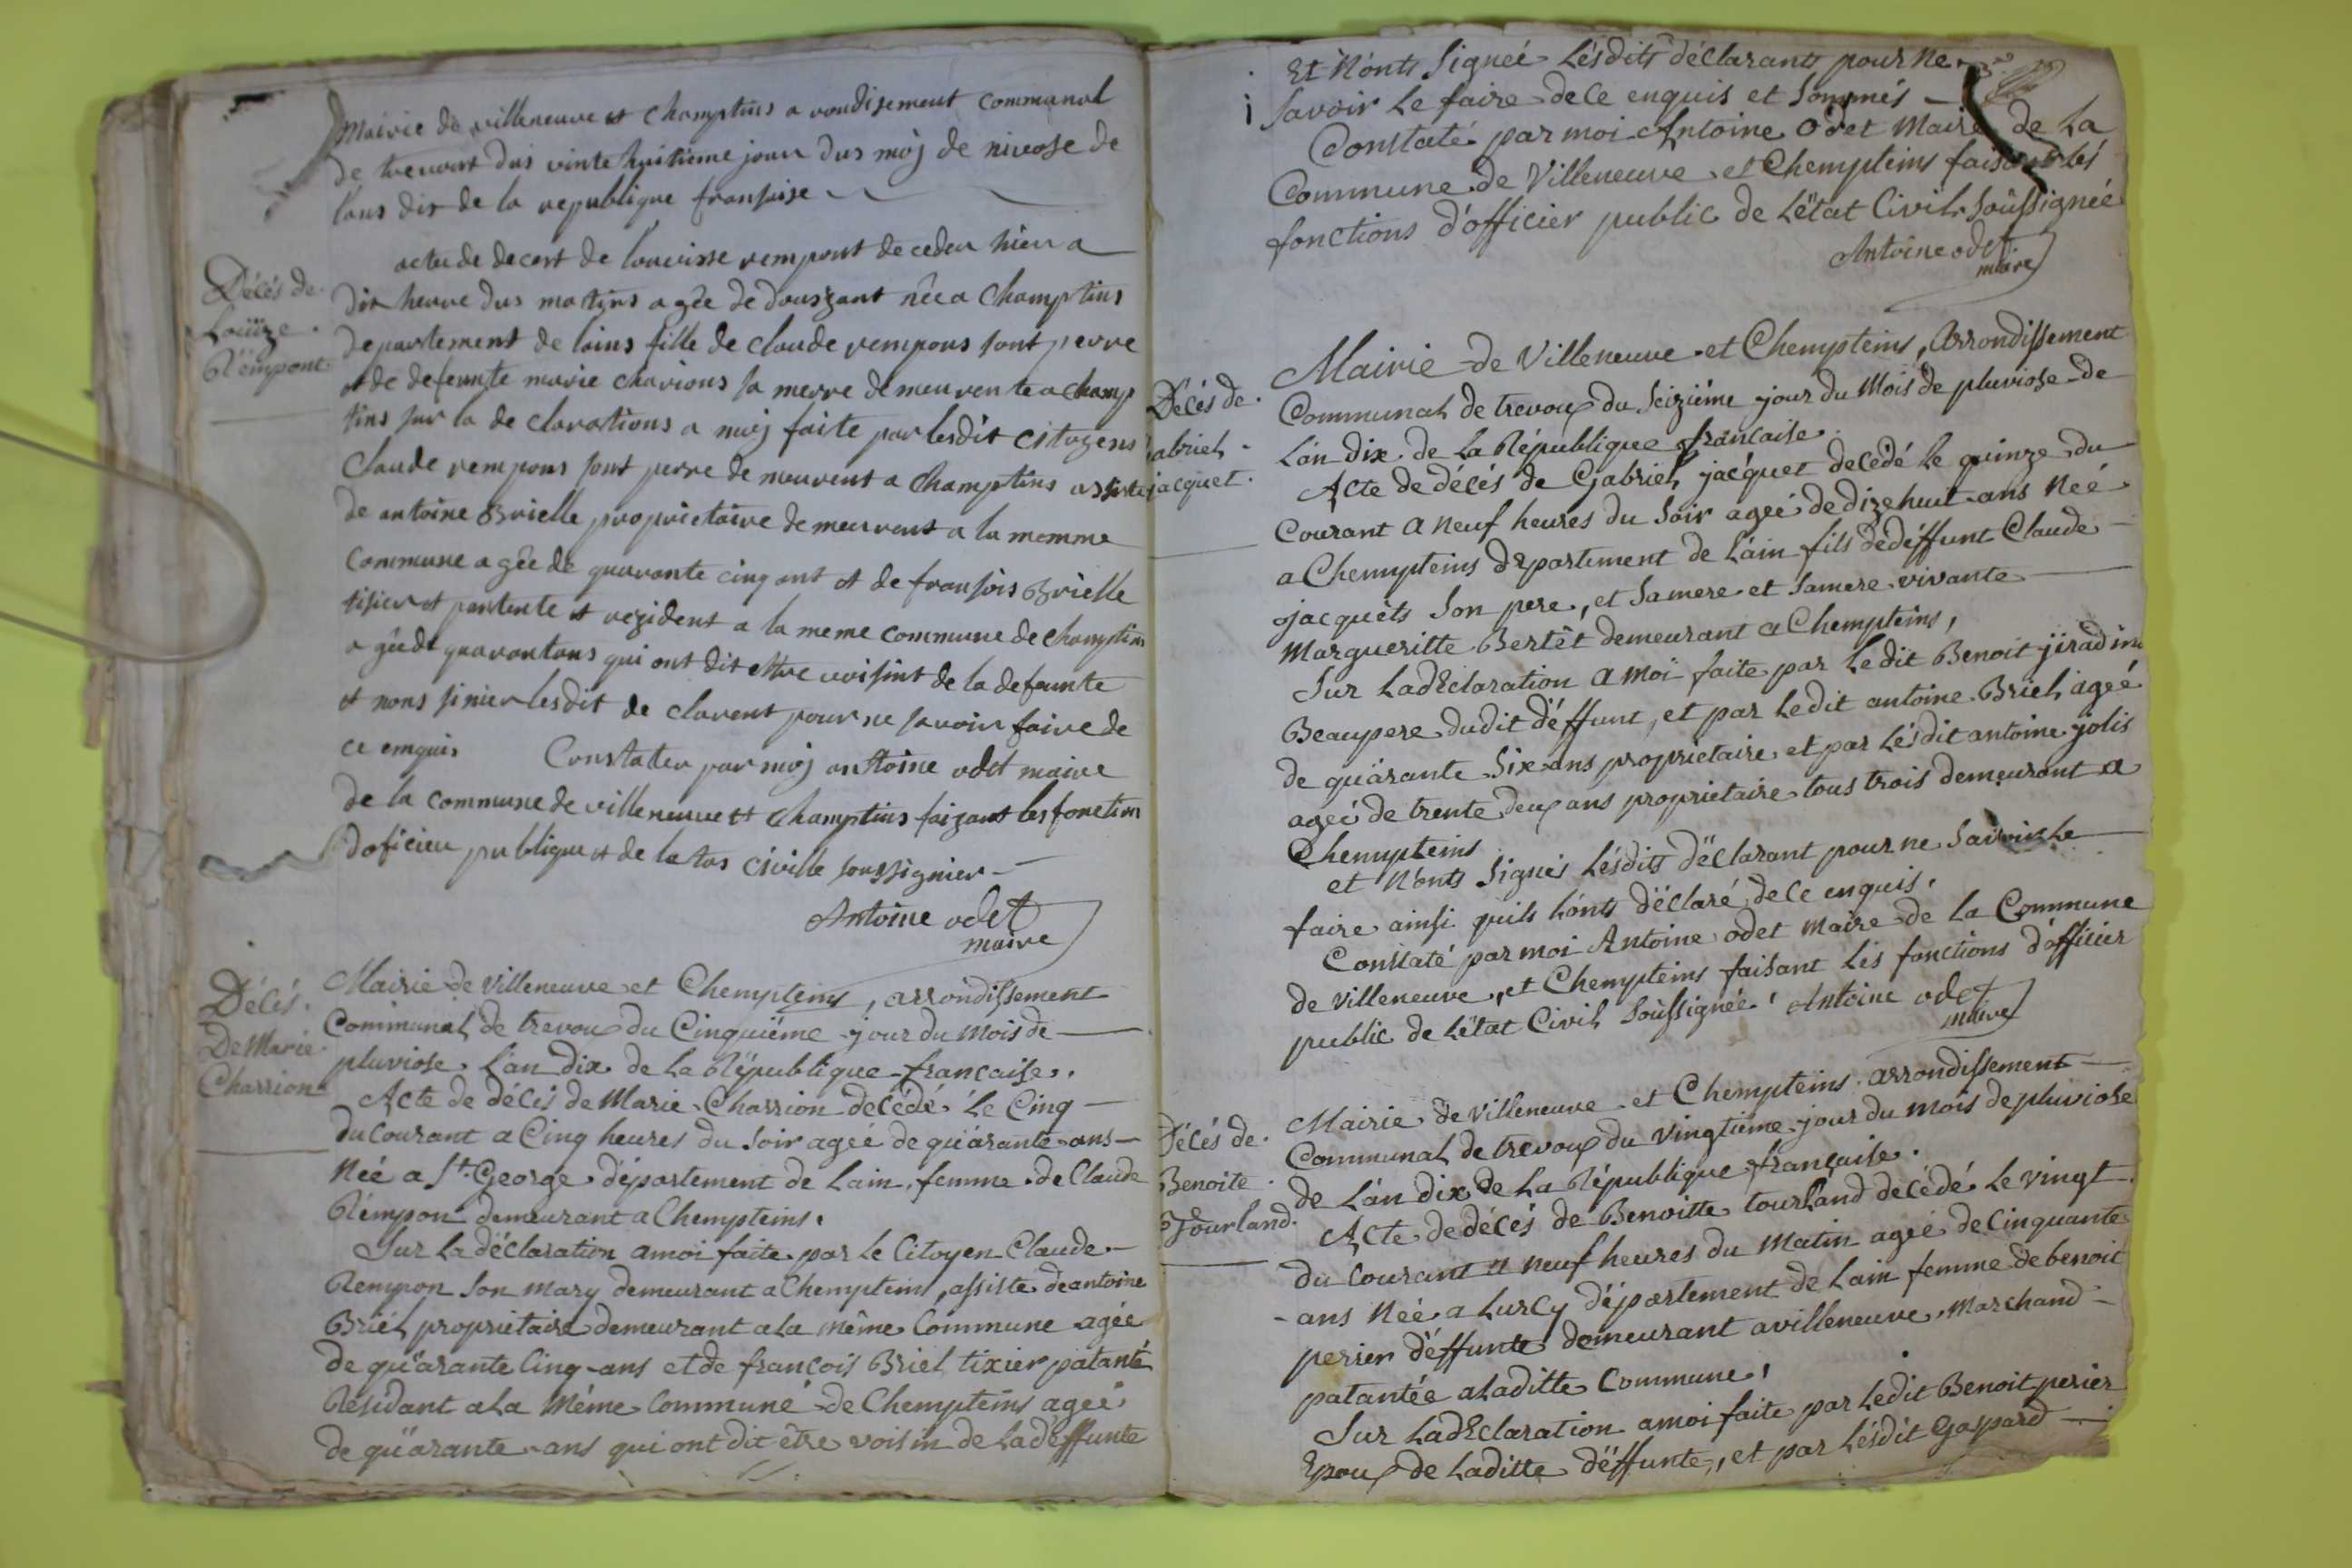 Mairie de villeneuve et Champtins a roudisement Communal
de treuout dus vinte huitieme jour dus moj de nivose de
lans dis de la republique fransoise
Décés de
Loüize
Rémpont
actu de decert de louuisse rempont deceder hier a
dix heure dus matins agée de douszant née a Champtins
departement de loins fille de claude rempons sont perre
et de defeunte marie charions sa merre demeurente a Champ
tins sur la de clarations a moij faite par lesdit citozens
Claude rempons sont perre demeurent a Champtins assiste
de antoine Brielle proprietaire demeurent a la memme
Commune agée de quaronte cinq ant et de fransois Brielle
tisier et pantente et rezident a la meme commune de Champtins
agéede quarantans qui ont dit ettre voisint de la defeunte
et nons sinier lesdit de clarent pour ne savoir faire de
ce enquis Constater par moij anttoine odet maire
de la commune de villeneuve et Champtins faizant les fonctions
doficier publique et de letas civille soussignier
Antoine odet
maire
Décés
De Marie
Charrion
Mairie de villeneuve et Chempteins, arrondissement
Communal de trevoux du Cinquiéme jour du mois de
pluviose. L'an dix de la République française.
Acte de décés de Marie Charrion decédé le Cinq
du courant a Cinq heures du soir ageé de quarante ans
Neé a St. George département de Lain, femme de Claude
Rémpon demeurant a Chempteins.
Sur la déclaration amoi faite par le Citoyen Claude
Rempon son mary demeurant a Chempteins, assiste de antoine
Briel propriétaire demeurant ala même Commune agée
de quarante Cinq ans et de françois Briel tixier patanté
Résidant ala même Commune de Chempteins ageé
de quarante ans qui ont dit être voisin de la déffunte
Et N'onts Signeé Lésdits déclarants pour Ne
Savoir Le faire de Ce enquis et Sommés
Constaté par moi Antoine Odet Maire de La
Commune de Villeneuve et Chempteins faisant Lés
fonctions d'officier public de L'état Civil Soûssignée
Antoine odet
maire
Décés de
abriel
jacquet
Mairie de Villeneuve et Chempteins, Arrondissement
Communal de trevoux du Seiziéme jour du Mois de pluviose de
L'an dix de La République française.
Acte de décés de Gabriel jacquet decédé le quinze du
Courant a neuf heures du Soir ageé de dize huit ans Neé
a Chempteins département de L'ain fils dedéffunt Claude
jacquéts Son pere, et Samere et Samere vivante
Margueritte Bertêt demeurant a Chempteins,
Sur Ladéclaration a moi faite par Ledit Benoit
Beaupere dudit déffunt, et par Ledit antoine Briel ageé
de quarante Six ans proprietaire et par Lésdit antoine jolis
ageé de trente deux ans proprietaire tous trois demeurant a
Chempteins
et N'onts Signés Lésdits déclarant pour ne Savoir Le
faire ainsi quils L'onts déclaré de Ce enquis.
Constaté par moi Antoine odet Maire de la Commune
de villeneuve, et Chempteins faisant Lés fonctions d'officier
public de L'état Civil Soûssignée. Antoine odet
maire
Décés de
Benoite
Tourland
Mairie de villeneuve et Chempteins arrondissement
Communal de trevoux du vingtième jour du mois de pluviose
de L'an dix de La République française.
Acte de décés de Benoitte tourland decédé le vingt
du courant a neuf heures du Matin ageé de Cinquante
ans Neé a Lurcy département de Lain femme de benoit
perier déffunte demeurant avilleneuve, Marchand
patantée aladitte Commune.
Sur Ladéclaration amoi faite par Ledit Benoit perier
Epoux de Laditte déffunte, et par Lésdit Gaspard